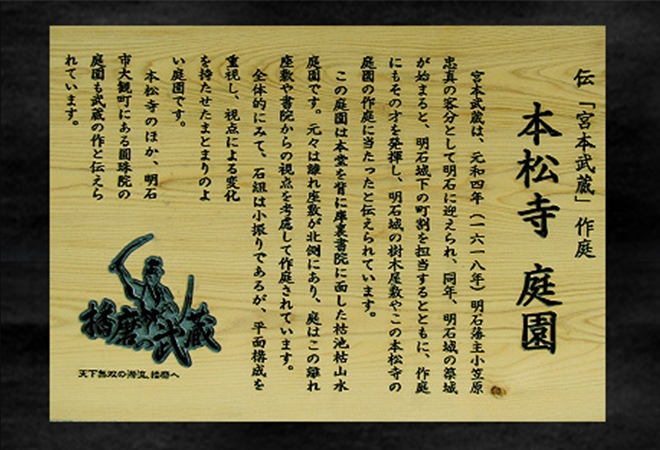 伝「宮本武蔵」作庭
本松寺 庭園
宮本武蔵は、元和四年（一六一八年）明石藩主小笠原
忠真の客分として明石に迎えられ、同年、明石城の築城
が始まると、明石城下の町割を担当するとともに、作庭
にもその才を発揮し、明石城の樹木屋敷やこの本松寺の
庭園の作庭に当たったと伝えられています。
この庭園は本堂を背に庫裏書院に面した枯池枯山水
庭園です。元々は離れ座敷が北側にあり、庭はこの離れ
座敷や書院からの視点を考慮して作庭されています。
全体的にみて、石組は小振りであるが、平面構成を
重視し、視点による変化
を持たせたまとまりのよ
い庭園です。
本松寺のほか、明石
市大観町にある圓珠院の
庭園も武蔵の作と伝えら
れています。
播磨の武蔵
天下無双の源流、播磨へ